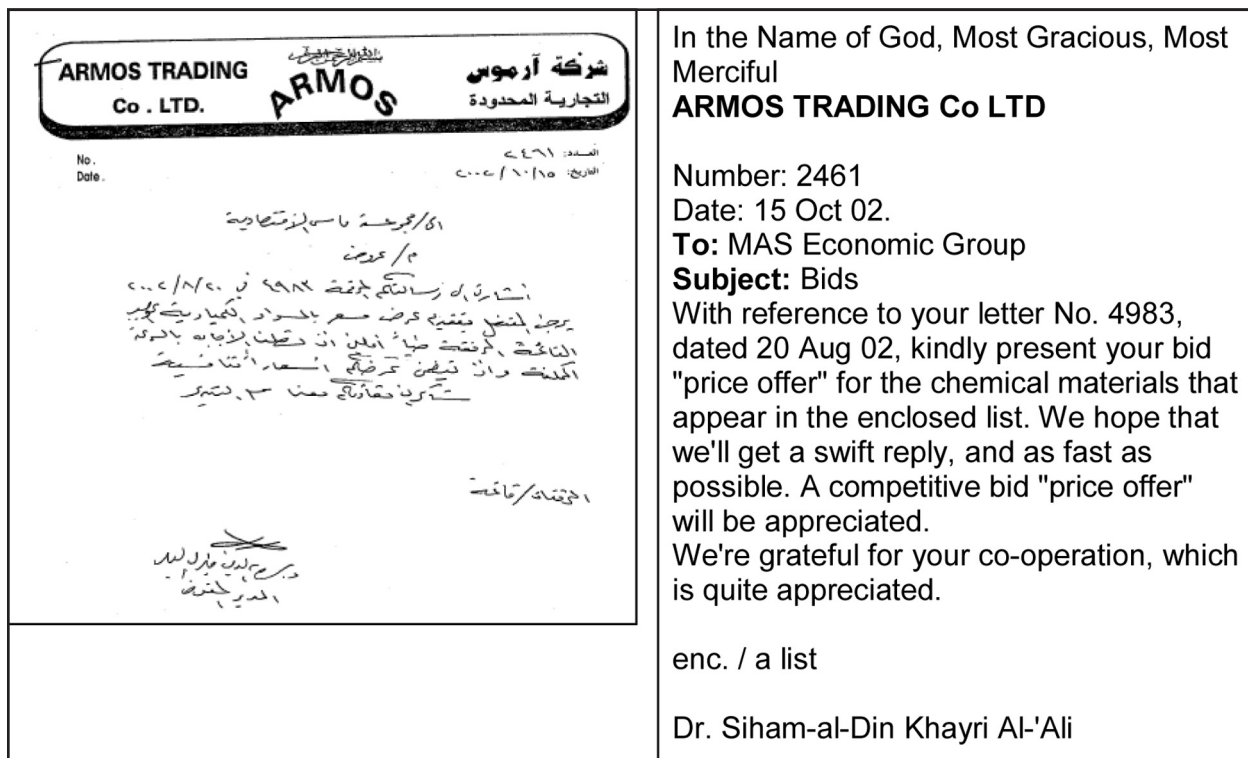 ARMOS TRADING
Co . LTD.
ARMOS
شركة آرموس
التجارية المحدودة
No.
Date.
العدد: ٢٤٦١
التاريخ: ٢٠٠٢/١٠/١٥
الى/مجموعة ماس الاقتصادية
م/ عروض
اشارة الى رسالتكم المرقمة ٤٩٨٣ في ٢٠٠٢/٨/٢٠
يرجى التفضل بتقديم عرض سعر بالمواد الكيمياوية
القائمة المرفقة آملين ان الاجابة بالسرعة
الممكنة وان عرضكم اسعار تنافسية
شاكرين تعاونكم معنا مع التقدير
المرفقات/قائمة
المدير المفوض
In the Name of God, Most Gracious, Most
Merciful
ARMOS TRADING Co LTD
Number: 2461
Date: 15 Oct 02.
To: MAS Economic Group
Subject: Bids
With reference to your letter No. 4983,
dated 20 Aug 02, kindly present your bid
"price offer" for the chemical materials that
appear in the enclosed list. We hope that
we'll get a swift reply, and as fast as
possible. A competitive bid "price offer"
will be appreciated.
We're grateful for your co-operation, which
is quite appreciated.
enc. / a list
Dr. Siham-al-Din Khayri Al-'Ali